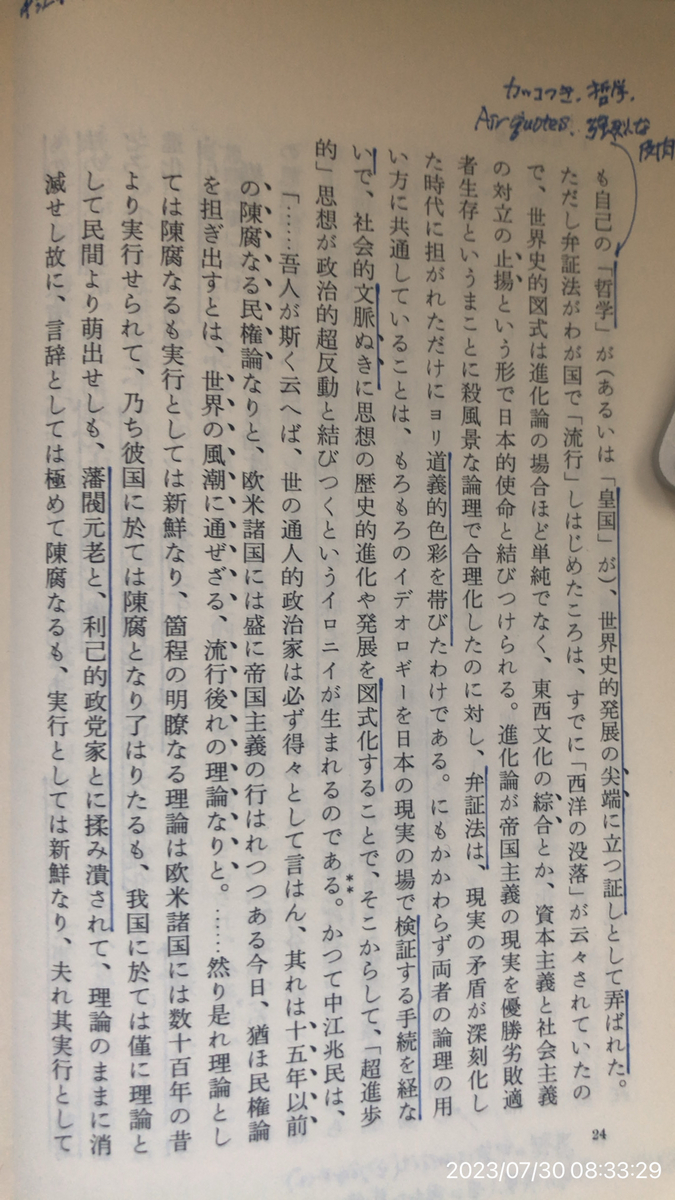 カッコつき、哲学、
Air quotes、強烈な
も自己の「哲学」が（あるいは「皇国」が）、世界史的発展の尖端に立つ証しとして弄ばれた。
ただし弁証法がわが国で「流行」しはじめたころは、すでに「西洋の没落」が云々されていたの
で、世界史的図式は進化論の場合ほど単純でなく、東西文化の綜合とか、資本主義と社会主義
の対立の止揚という形で日本的使命と結びつけられる。進化論が帝国主義の現実を優勝劣敗適
者生存というまことに殺風景な論理で合理化したのに対し、弁証法は、現実の矛盾が深刻化し
た時代に担がれただけにヨリ道義的色彩を帯びたわけである。にもかかわらず両者の論理の用
い方に共通していることは、もろもろのイデオロギーを日本の現実の場で検証する手続を経な
いで、社会的文脈ぬきに思想の歴史的進化や発展を図式化することで、そこからして、「超進歩
的」思想が政治的超反動と結びつくというイロニイが生まれるのである。かつて中江兆民は、
**
「……吾人が斯く云へば、世の通人的政治家は必ず得々として言はん、其れは十五年以前
の陳腐なる民権論なりと、欧米諸国には盛に帝国主義の行はれつつある今日、猶ほ民権論
を担ぎ出すとは、世界の風潮に通ぜざる、流行後れの理論なりと。……然り是れ理論とし
ては陳腐なるも実行としては新鮮なり、箇程の明瞭なる理論は欧米諸国には数十百年の昔
より実行せられて、乃ち彼国に於ては陳腐となり了はりたるも、我国に於ては僅に理論と
して民間より萌出せしも、藩閥元老と、利己的政党家とに揉み潰されて、理論のままに消
滅せし故に、言辞としては極めて陳腐なるも、実行としては新鮮なり、夫れ其実行として
24
2023/07/30 08:33:29